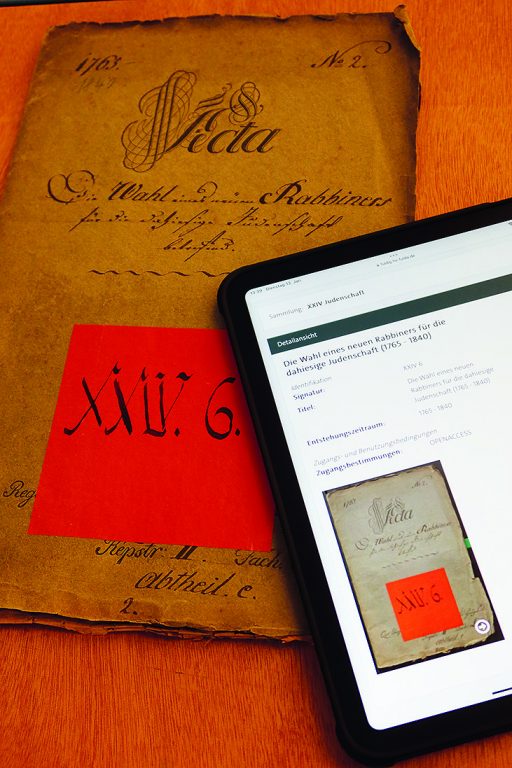 1765.
No 2.
Acta
Die Wahl eines neuen Rabbiners
für die dahiesige Judenschaft
betreffend.
XXIV. 6.
Reg
Repstr: II. Fach
Abtheil. c.
2.
Dienstag 13. Jan
Sammlung: XXIV Judenschaft
Detailansicht
Die Wahl eines neuen Rabbiners für die
dahiesige Judenschaft (1765 - 1840)
Identifikation
Signatur: XXIV 6
Titel: Die Wahl eines neuen
Rabbiners für die dahiesige
Judenschaft (1765 - 1840)
Entstehungszeitraum: 1765 - 1840
Zugangs- und Benutzungsbedingungen
Zugangsbestimmungen: OPENACCESS
No 2.
Acta
Die Wahl eines neuen Rabbiners
XXIV. 6.